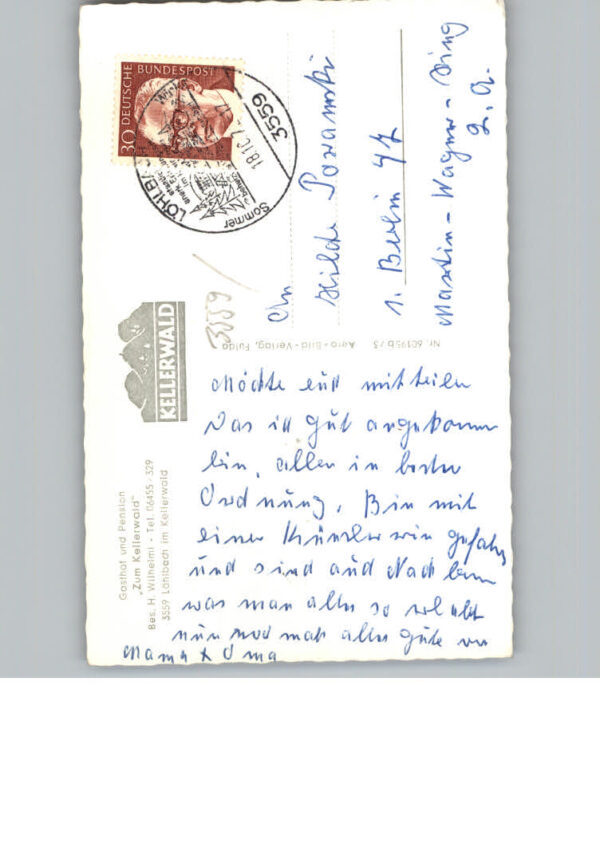 DEUTSCHE BUNDESPOST
30
3559
LÖHLBA
18.10.7
Sommer
3559
An
Hilde
1. Berlin 47
Martin-Wagner-Ring
2. a.
KELLERWALD
Nr. 60195b/3 Aero-Bild-Verlag, Fulda
Gasthof und Pension
"Zum Kellerwald"
Bes. H. Wilhelmi - Tel. 06455 - 329
3559 Löhlbach im Kellerwald
Möchte euch mitteilen
Das ich gut angekommen
bin, alles in bester
Ordnung. Bin mit
einer Künstlerin gefahren
und sind auch Nachbarn
was man alles so erlebt
nun noch mals alles gute von
Mama + Oma